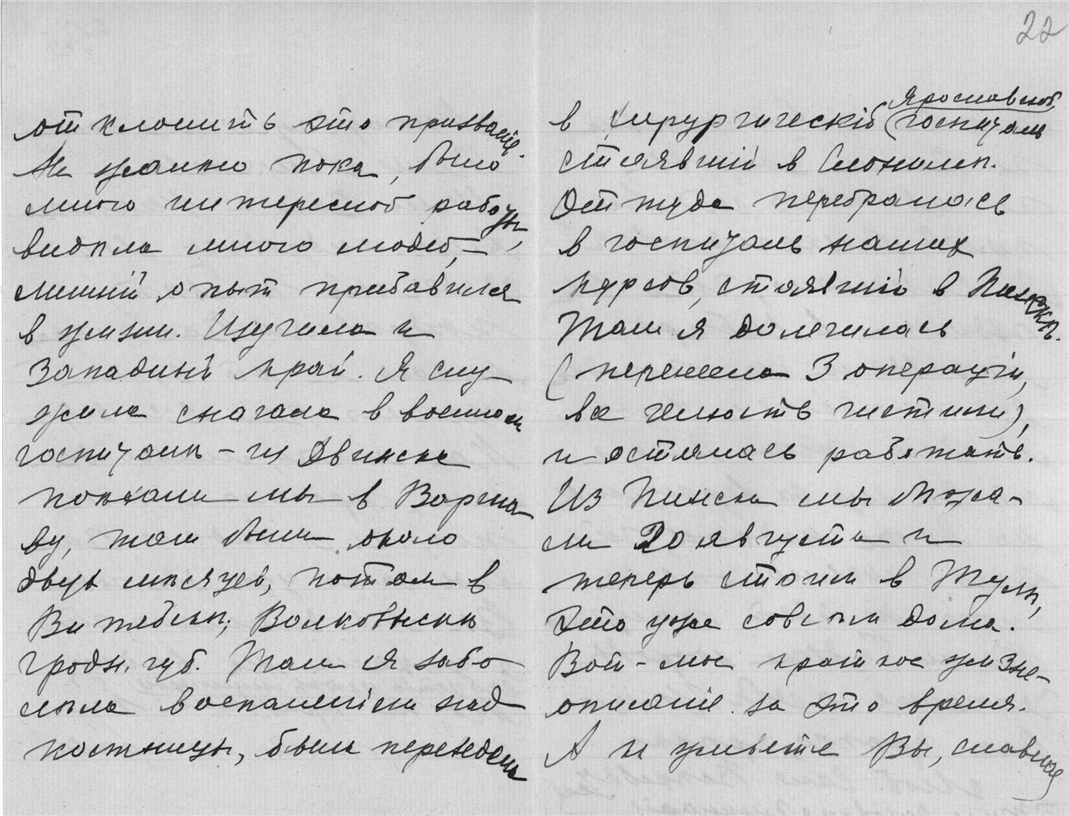 22
отклонить это призваніе.
Не жалею пока, было
много интересной работы,
видѣла много людей, –
лишній опыт прибавился
в жизни. Изучила и
Западный край. Я слу-
жила сначала в военном
госпиталѣ – из Двинска
поѣхали мы в Варша-
ву, там были около
двух мѣсяцев, потом в
Витебск, Волковыск
Гродн. губ. Там я забо-
лѣла воспаленіем над-
костницы, была переведена
в хирургическій (Ярославской
госпиталь
стоявшій в Слонимѣ.
Оттуда перебралась
в госпиталь наших
курсов, стоявшій в Пинскѣ.
Там я долечилась
(перенесла 3 операціи,
все челюсть чистили),
и осталась работать.
Из Пинска мы бѣжа-
ли 20 августа и
теперь стоим в Тулѣ,
это уже совсѣм дома.
Вот – мы краткое жизне-
описаніе за это время.
А к живете Вы, славная